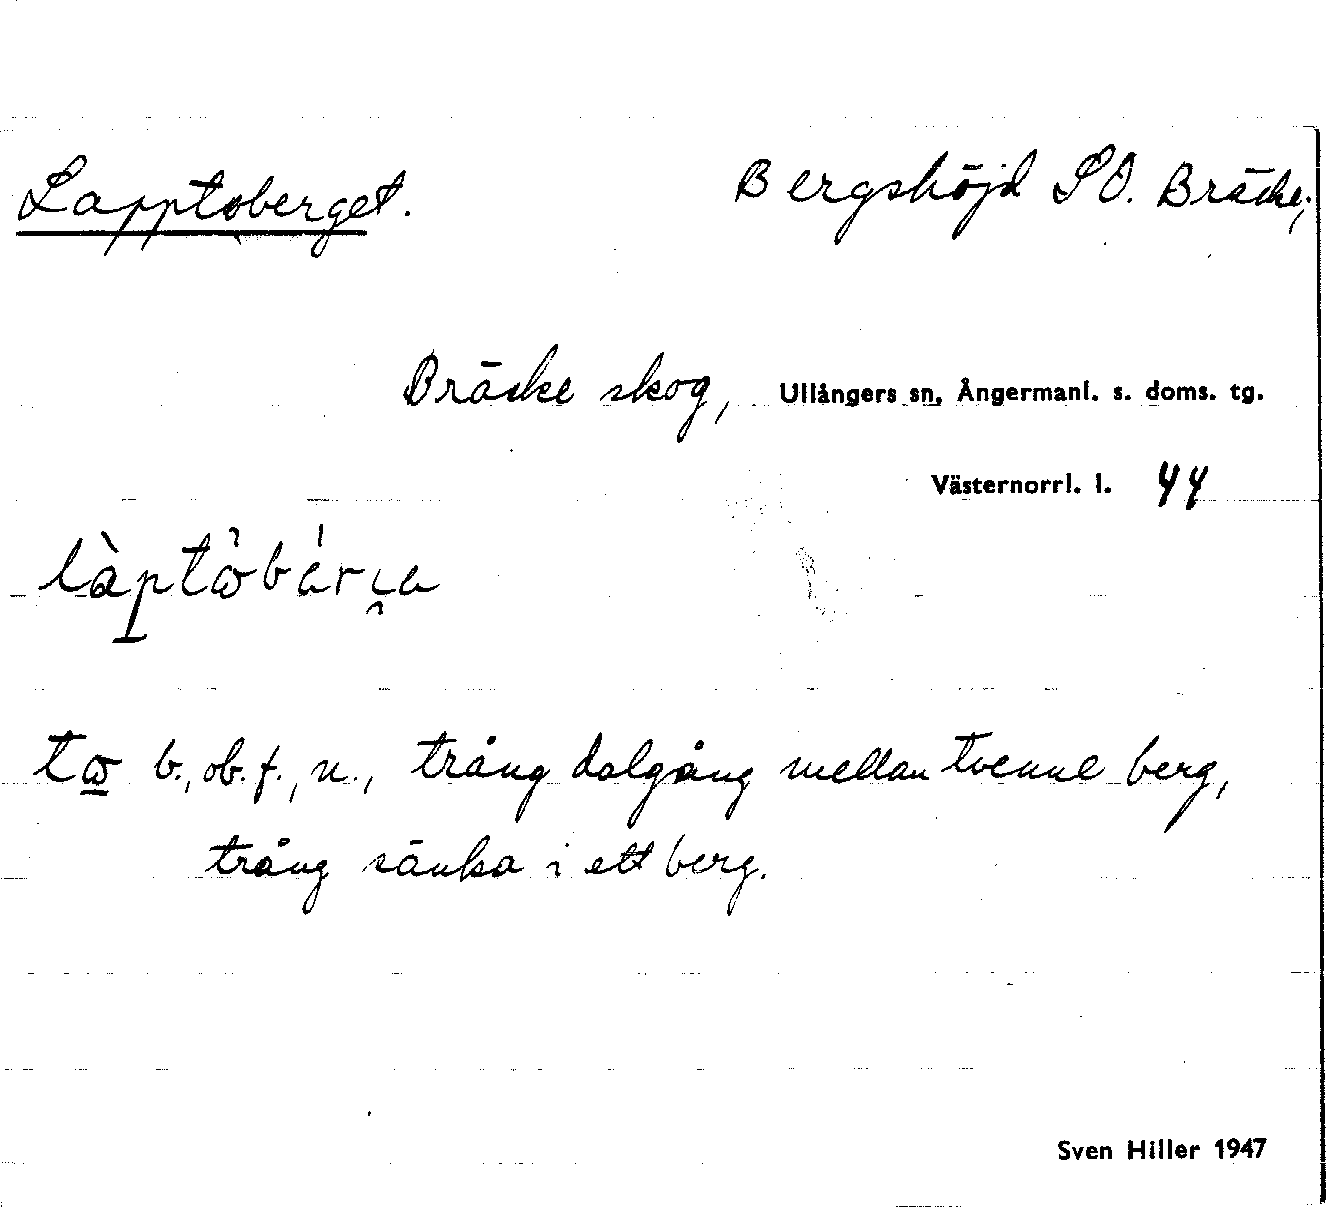 Lapptoberget. Bergshöjd SO. Bräcke;
Bräcke skog, Ullångers sn, Ångermanl. s. doms. tg.
Västernorrl. l. 44
b., ob. f., n., trång dalgång mellan tvenne berg,
trång sänka i ett berg.
Sven Hiller 1947